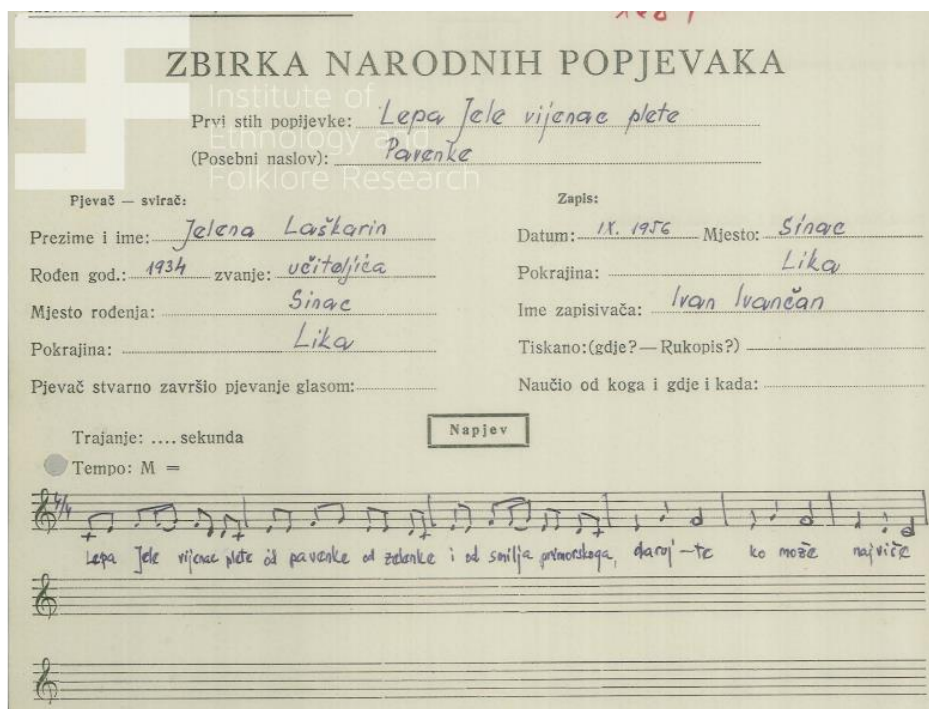 ZBIRKA NARODNIH POPJEVAKA
Institute of
Ethnology and
Folklore Research
Prvi stih popijevke: Lepa Jele vijenac plete
(Posebni naslov): Pavenke
Pjevač — svirač:
Prezime i ime: Jelena Laškarin
Rođen god.: 1934 zvanje: učiteljica
Mjesto rođenja: Sinac
Pokrajina: Lika
Pjevač stvarno završio pjevanje glasom:
Zapis:
Datum: IX. 1956 Mjesto: Sinac
Pokrajina: Lika
Ime zapisivača: Ivan Ivančan
Tiskano:(gdje?—Rukopis?)
Naučio od koga i gdje i kada:
Trajanje: .... sekunda
Napjev
Tempo: M =
4/4
Lepa Jele vijenac plete od pavenke od zelenke i od smilja primorskoga, daroj-te ko može najviše